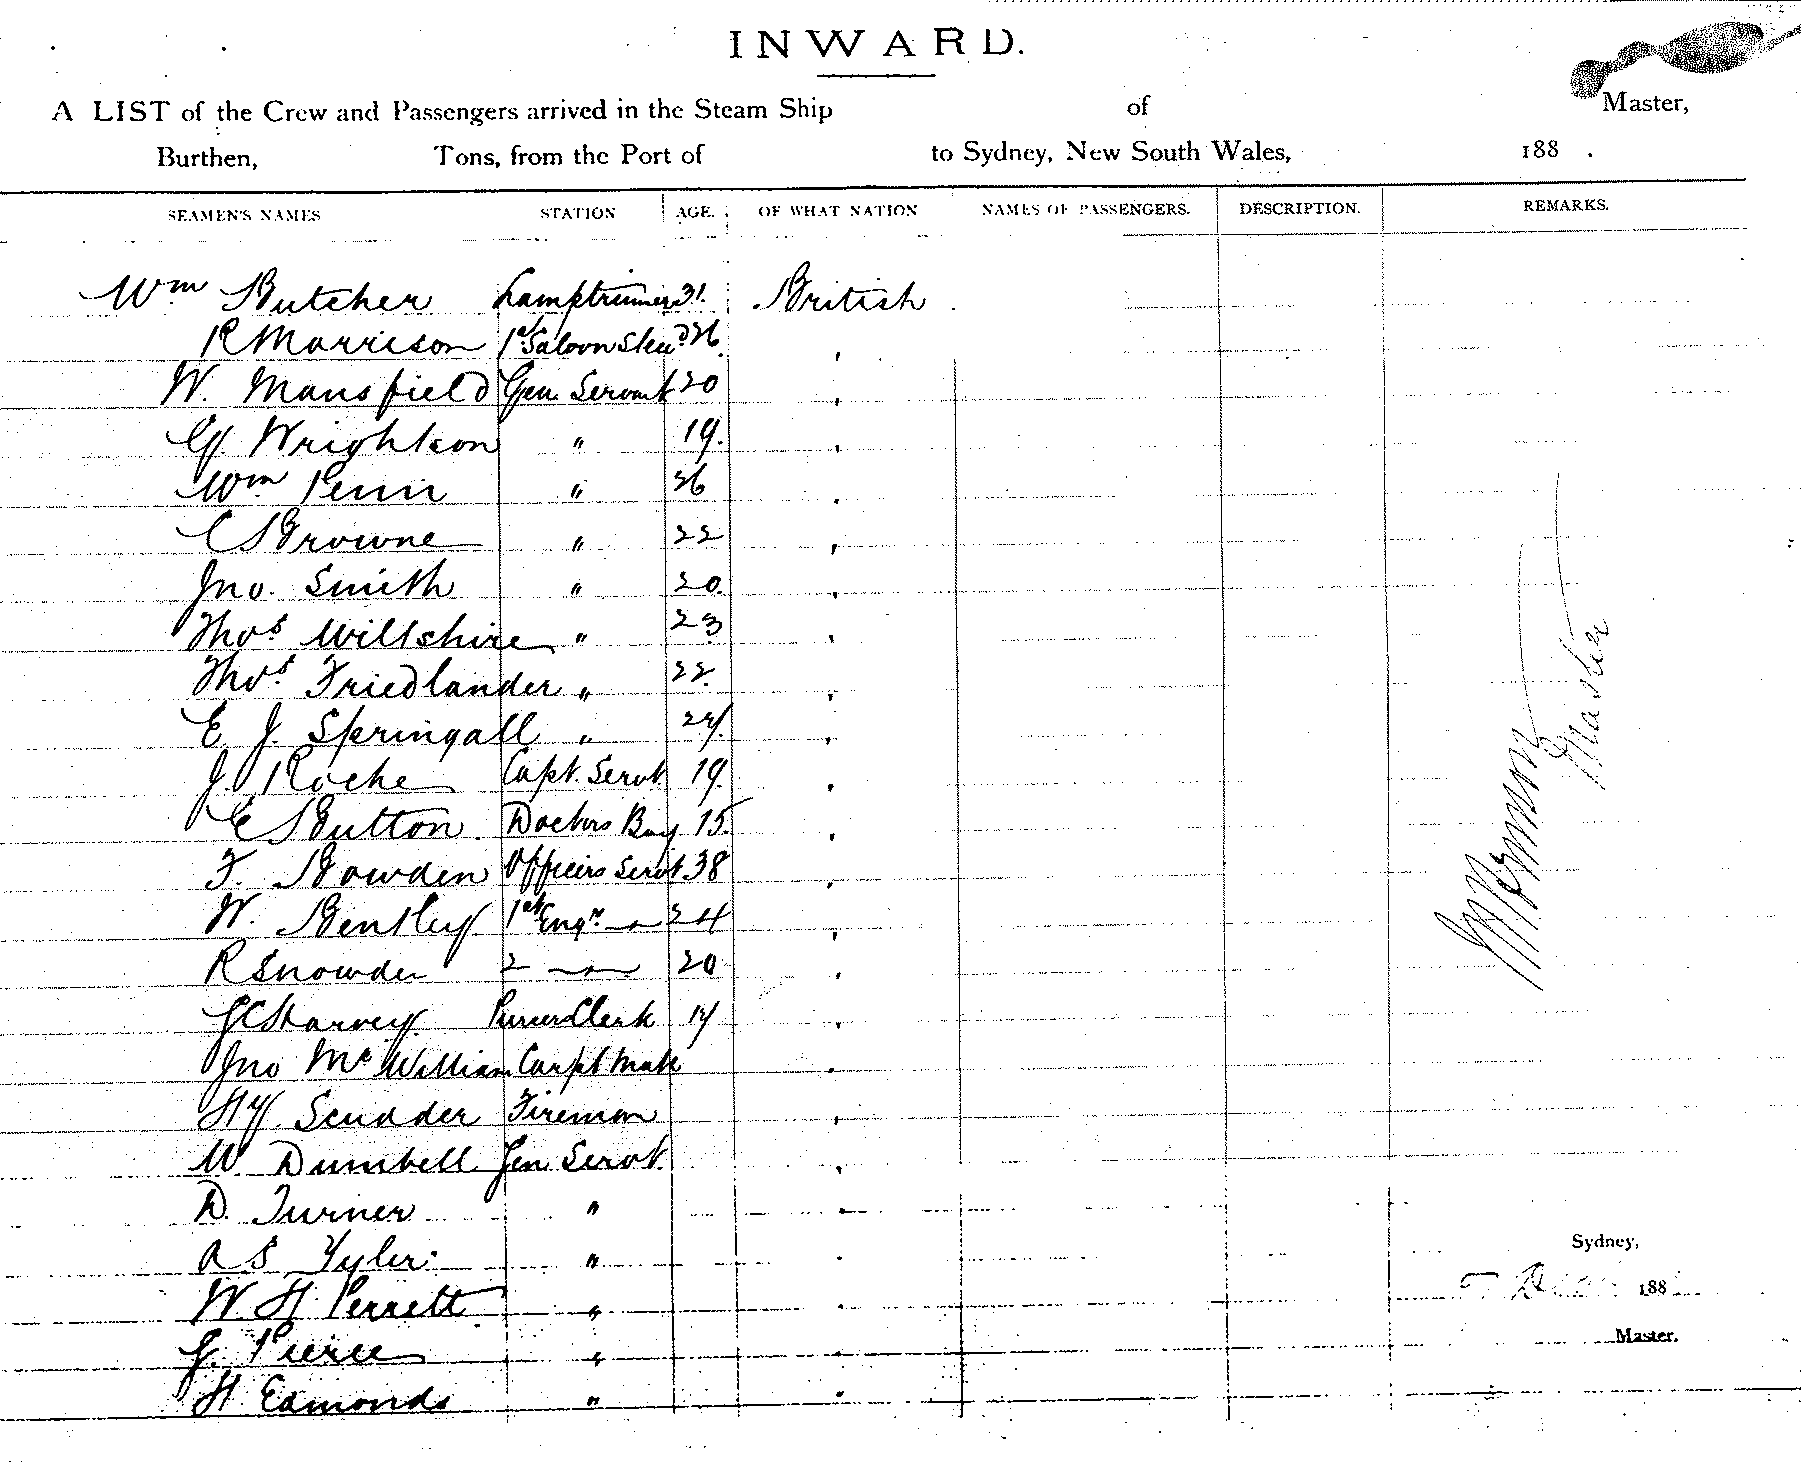 INWARD.
A LIST of the Crew and Passengers arrived in the Steam Ship of Master,
Burthen, Tons, from the Port of to Sydney, New South Wales, 188 .
SEAMEN'S NAMES STATION AGE. OF WHAT NATION NAMES OF PASSENGERS. DESCRIPTION. REMARKS.
Wm Butcher Lamptrimmer 31. British
R Morrison 1st Saloon Stewd 26 "
W. Mansfield Gen. Servant 20 "
Gy Wrightson " 19. "
Wm Penn " 26 "
C Browne " 22 "
Jno. Smith " 20. "
Thos Wiltshire " 23 "
Thos. Friedlander " 22. "
E. J. Springall " 24. "
J. Roche Capt. Servt 19. "
E Button Doctors Boy 15. "
F. Bowden Officers Servt 38 "
W. Bentley 1st Engr. " 24 "
R Snowden 2 " 20 "
G C Harvey Pursers Clerk "
Jno McWilliam Carpt Mate "
Hy. Scudder Fireman "
W. Dumbell Gen Servt. "
D. Turner " "
A S Tyler " "
W. H. Perrett " "
G. Pierce " "
H Edmonds " "
Master
Sydney,
188
Master.